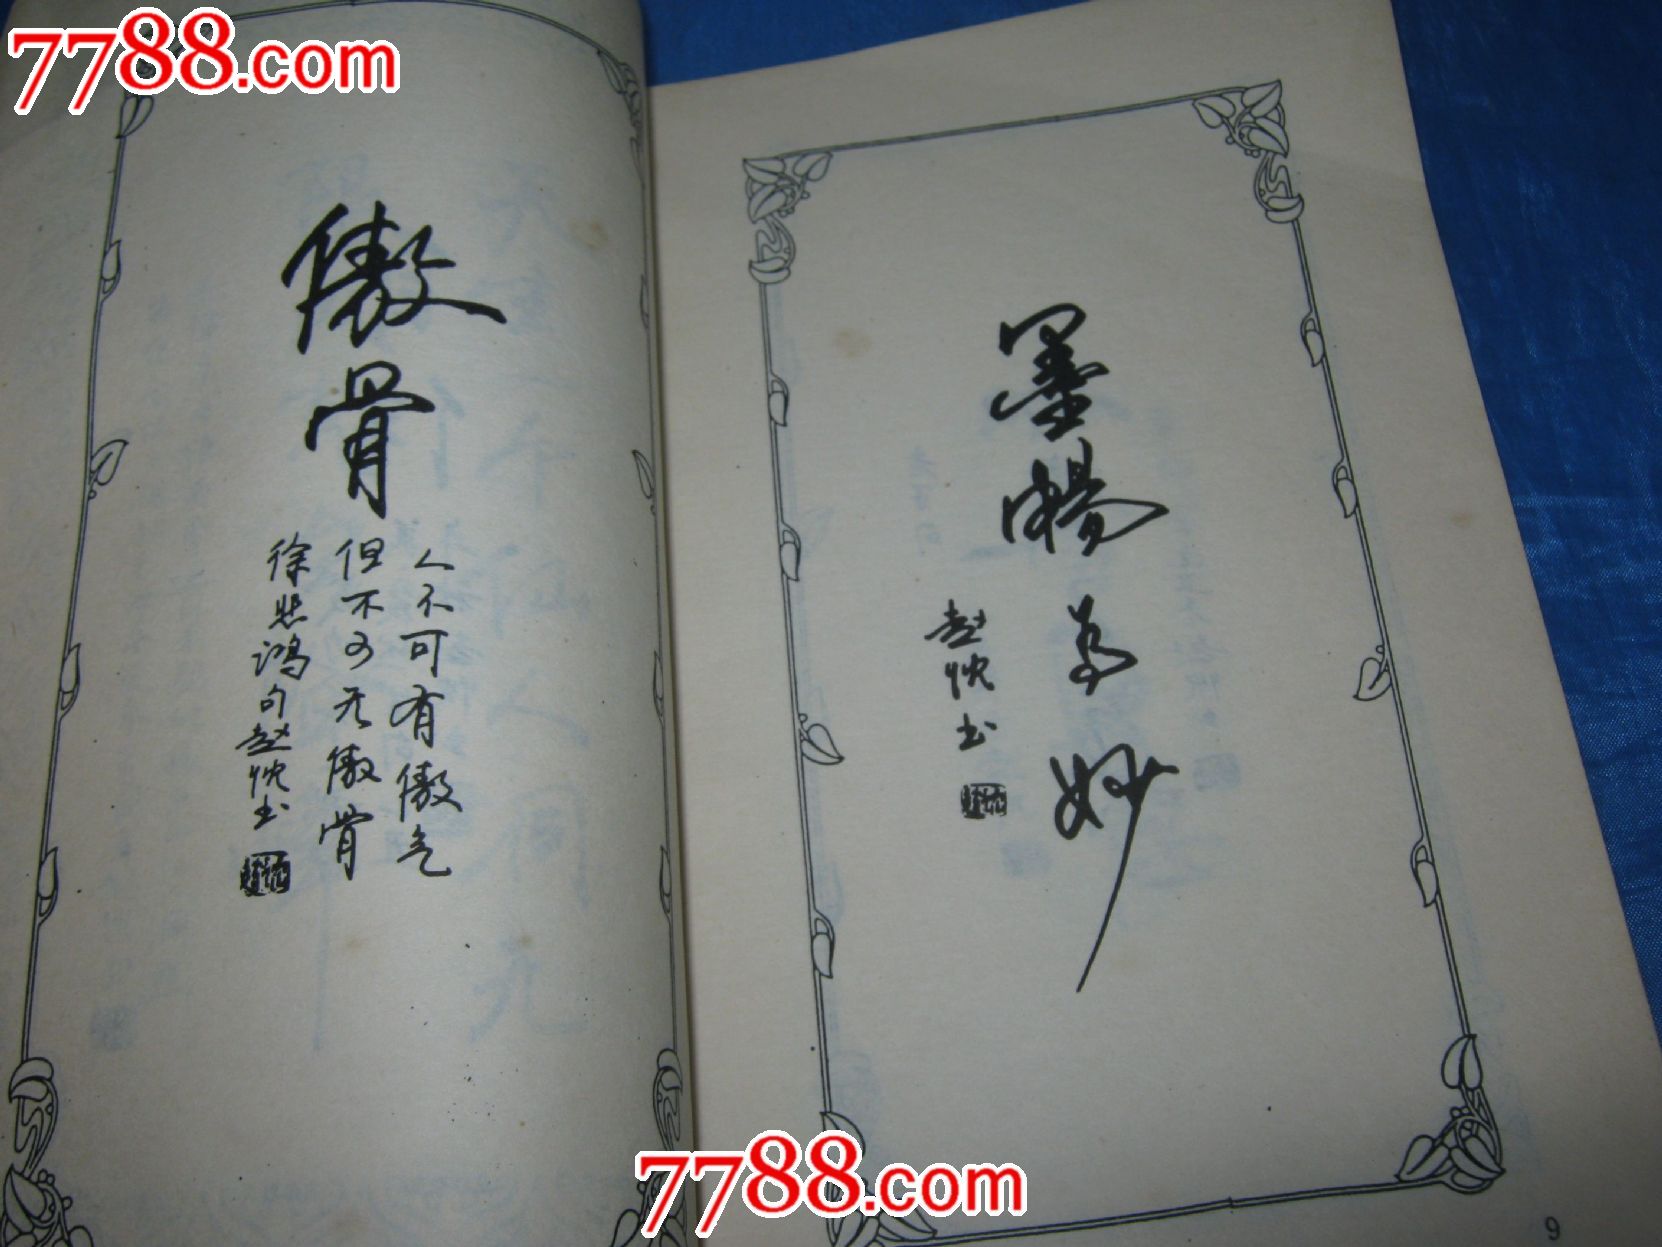 7788.com
傲骨
人不可有傲气
但不可无傲骨
徐悲鸿句赵忱书
墨畅为妙
赵忱书
9
7788.com